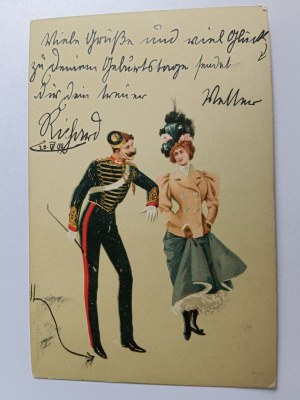 Viele Grüße und viel Glück
zu deinem Geburtstage sendet
Dir dein treuer Vetter
Richard